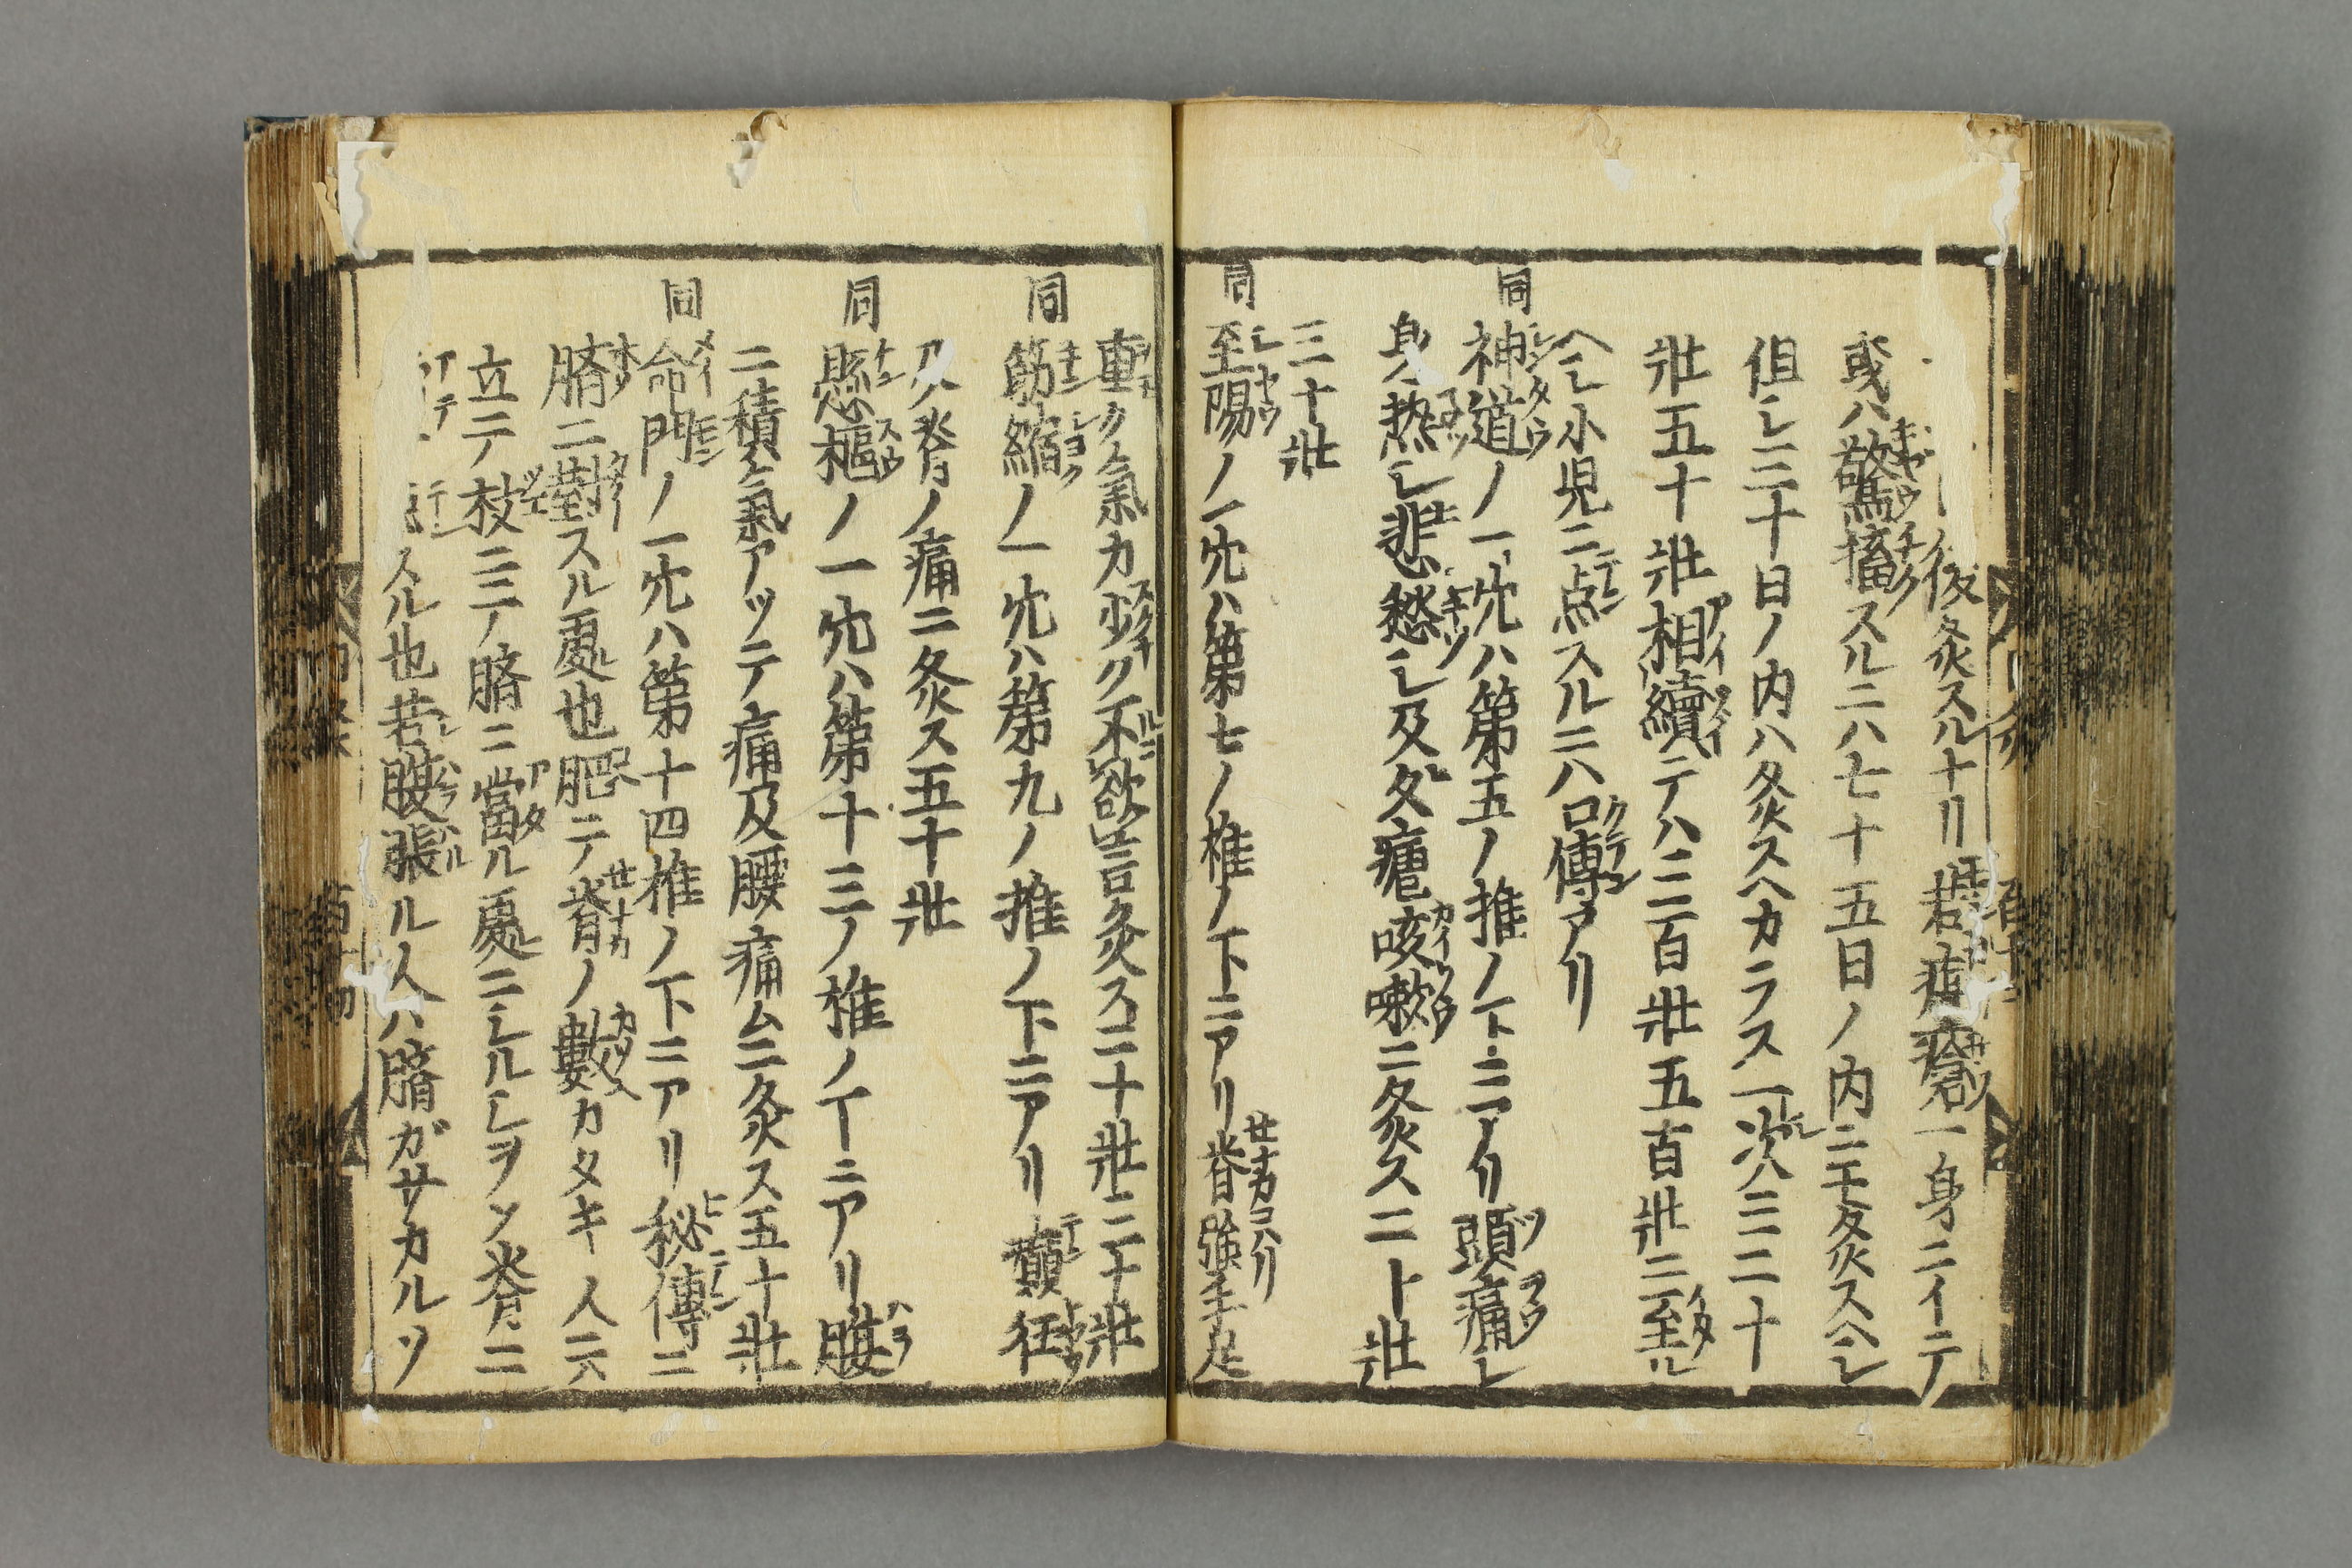 後灸スル十リ若 瘡一身ニイテ
或ハ驚搐スルニハ七十五日ノ内ニモ灸スヘシ
但シ三十日ノ内ハ灸スヘカラス一次ハ三二十
壯五十壯相續テハ三百壯五百壯ニ至ル
ヘシ小児ニ点スルニハ口傳アリ
同 神道ノ一穴ハ第五ノ推ノ下ニアリ頭痛シ
身热シ悲愁シ及ヒ久瘧咳嗽ニ灸ス二十壯
三十壯
同 至陽ノ一穴ハ第七ノ椎ノ下ニアリ脊強手足
重ク氣カ少ク不欲言灸ス二十壯三十壯
同 筋縮ノ一穴ハ第九ノ推ノ下ニアリ癲狂
及脊ノ痛ニ灸ス五十壯
同 懸樞ノ一穴ハ第十三ノ椎ノ下ニアリ腹
ニ積氣アツテ痛及腰痛ムニ灸ス五十壯
同 命門ノ一穴ハ第十四椎ノ下ニアリ秘傳ニ
臍ニ對スル處也肥テ脊ノ數カタキ人ニハ
立テ杖ニテ臍ニ當ル處ニシルシヲシ脊ニ
アテ 点スル也若腹脹ル人ハ臍ガサカルソ